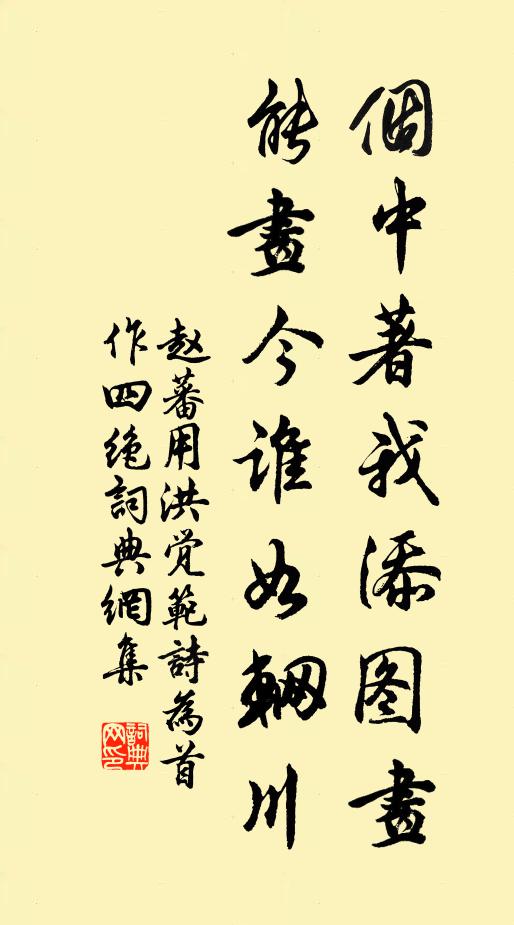 個中著我添图畫
能畫今谁如輞川
赵蕃用洪觉範詩為首
作四絶詞典網集
詞典
网印